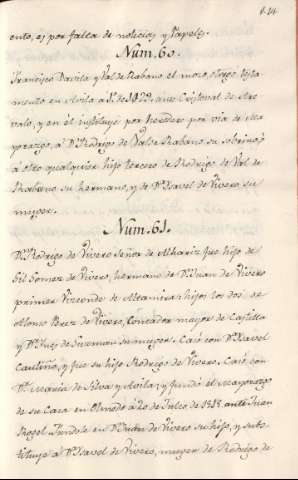 ento, es por falta de noticias, y Papeles.
Num. 60.
Francisco Davila y Val de Rabano el mozo, otorgo testa
mento en Avila à 1º de 1522. ante Cristoval de Are
valo, y en el instituye por heredero por via de Ma
yorazgo, à Dn. Rodrigo de Valde Rabano su sobrino, y
à otro qualquier hijo tercero de Rodrigo de Val de
Rabano su hermano, y de Dª Ysavel de Vivero su
muger.
Num. 61.
Dn. Rodrigo de Vivero Señor de Alhariz fue hijo de
Gil Gomez de Vivero, hermano de Dn. Juan de Vivero
primer Vizconde de Altamira: hijos los dos de
Alonso Perez de Vivero, Contador mayor de Castilla
y Dª Ynes de Guzman su muger. Casó con Dª Ysavel
y fue su hijo Rodrigo de Vivero. Casó con
Dª Maria de Silva y Avila: y fundó el Mayorazgo
de su Casa en Olmedo à 20 de Julio de ante Juan
Rogel. Fundole en Dn. Juan de Vivero su hijo, y subs
tituyo à Dª Ysavel de Vivero, muger de Rodrigo de